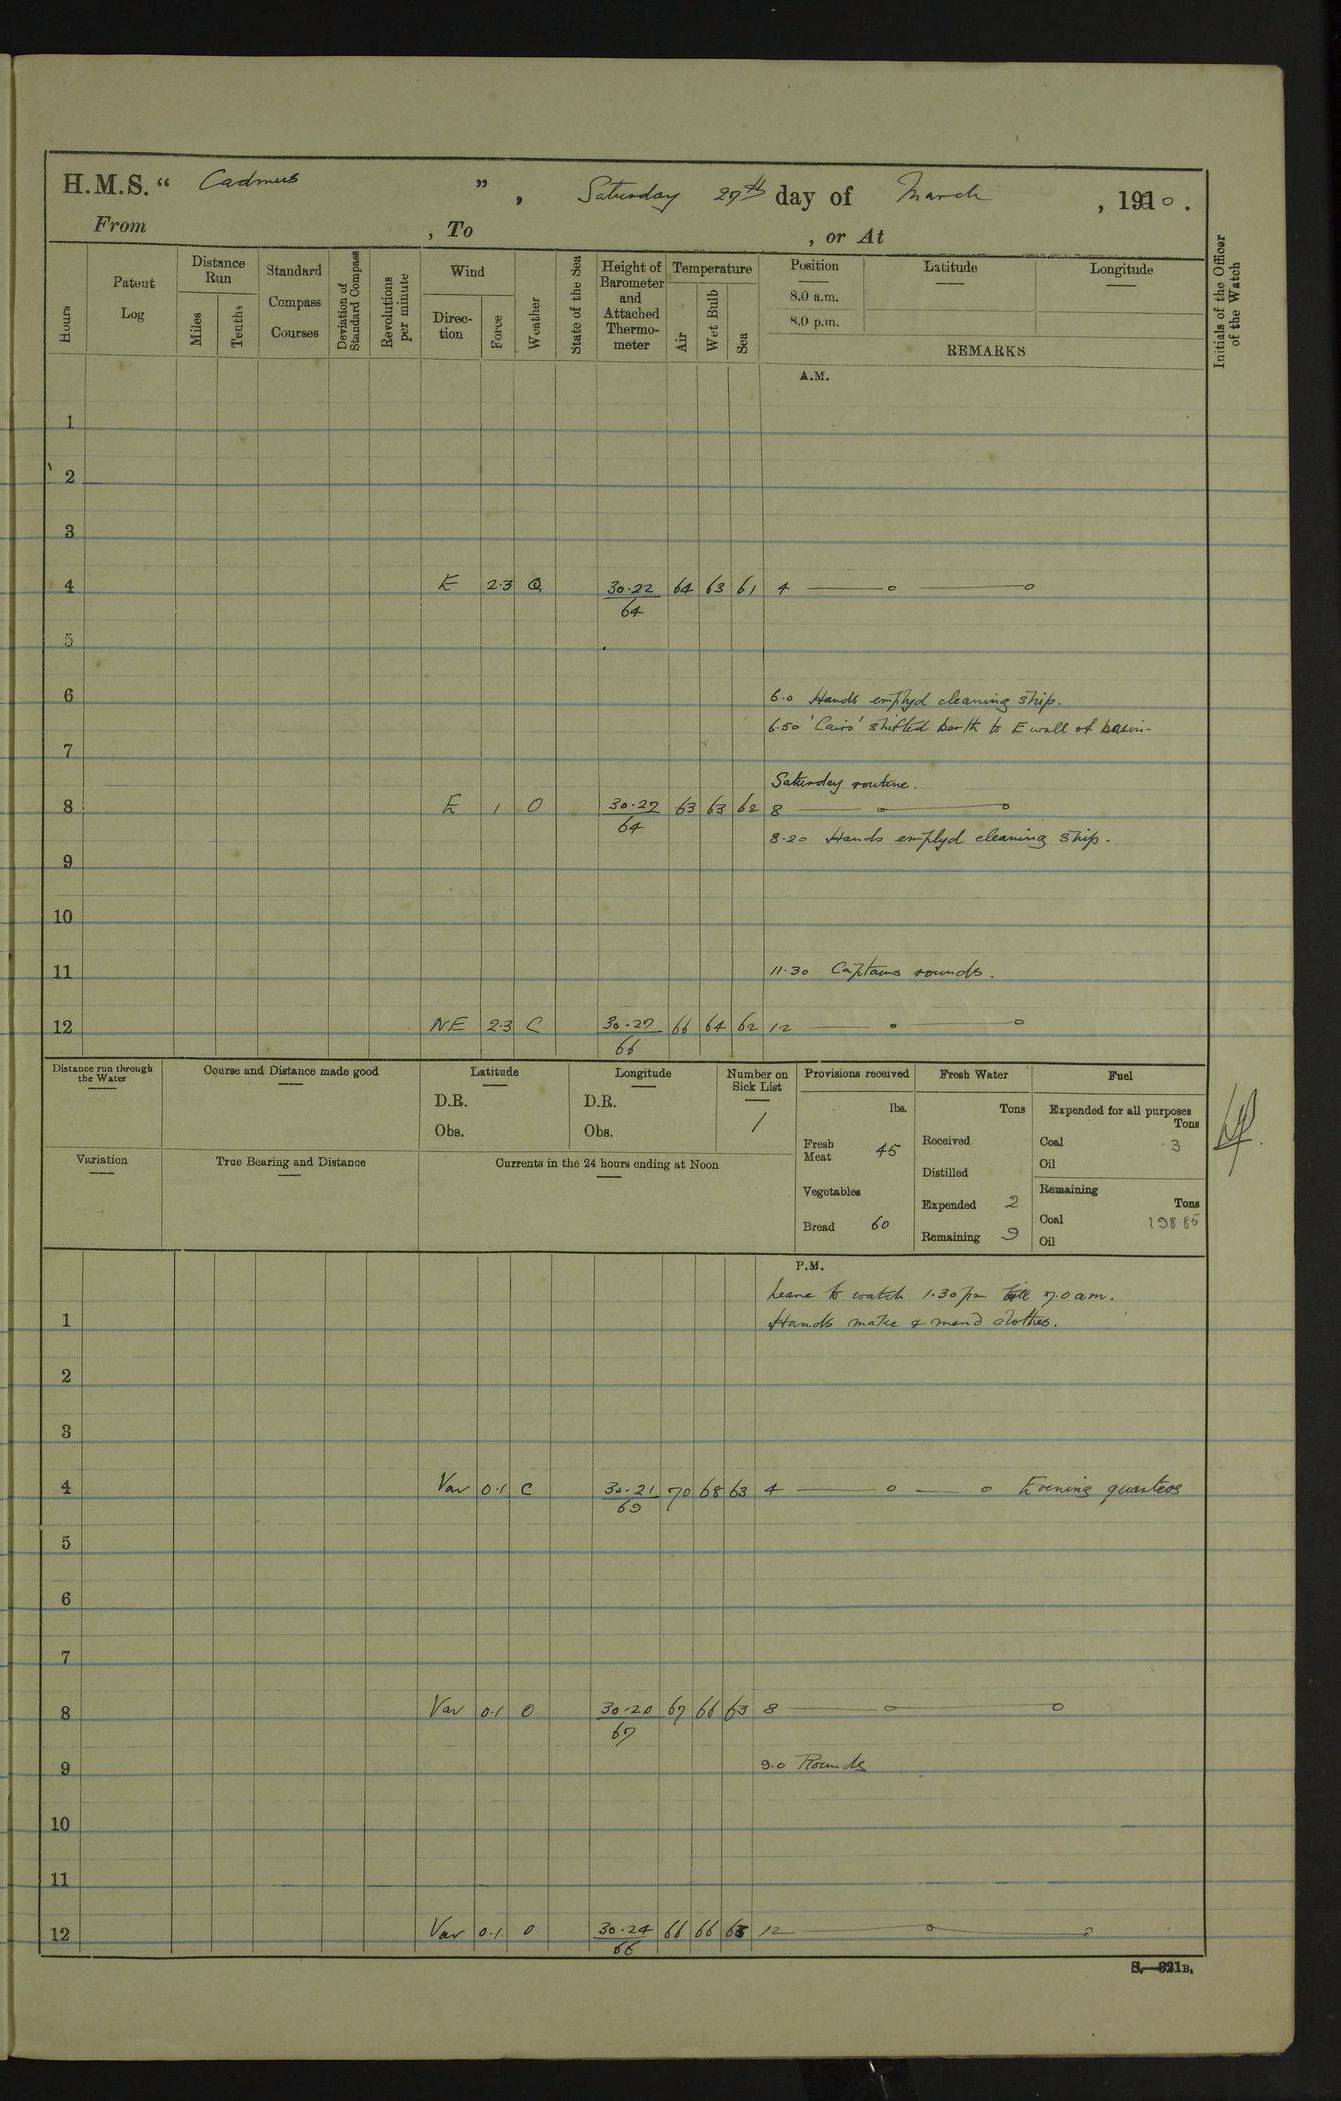 H.M.S. “ Cadmus ”, Saturday 27th day of March, 1910.
From , To , or At
Hours
Patent Log
Distance Run
Miles
Tenths
Standard Compass Courses
Deviation of Standard Compass
Revolutions per minute
Wind
Direction
Force
Weather
State of the Sea
Height of Barometer and Attached Thermometer
Temperature
Air
Wet Bulb
Sea
Position
8.0 a.m.
8.0 p.m.
Latitude
Longitude
REMARKS
Initials of the Officer of the Watch
A.M.
1
2
3
4 E 2·3 30·22 64 64 63 61 4
5
6 6.0 Hands emplyd cleaning ship.
6.50 'Cairo' shifted berth to E wall of basin-
7
Saturday routine.
8 E 1 O 30·27 64 63 63 62 8
8·20 Hands emplyd cleaning ship.
9
10
11 11·30 Captains rounds.
12 NE 2·3 C 30·27 66 66 64 62 12
Distance run through the Water
Course and Distance made good
Latitude
D.R.
Obs.
Longitude
D.R.
Obs.
Number on Sick List
1
Provisions received
lbs.
Fresh Meat 45
Vegetables
Bread 60
Fresh Water
Tons
Received
Distilled
Expended 2
Remaining 9
Fuel
Expended for all purposes
Tons
Coal ·3
Oil
Remaining
Tons
Coal 198 85
Oil
Variation
True Bearing and Distance
Currents in the 24 hours ending at Noon
P.M.
Leave to watch 1.30 pm till 7.0 am.
1 Hands make & mend clothes.
2
3
4 Var 0·1 C 30·21 69 70 68 63 4 Evening quarters
5
6
7
8 Var 0·1 O 30·20 67 67 66 63 8
9 9.0 Rounds
10
11
12 Var 0·1 O 30·24 66 66 66 63 12
S.—321B.